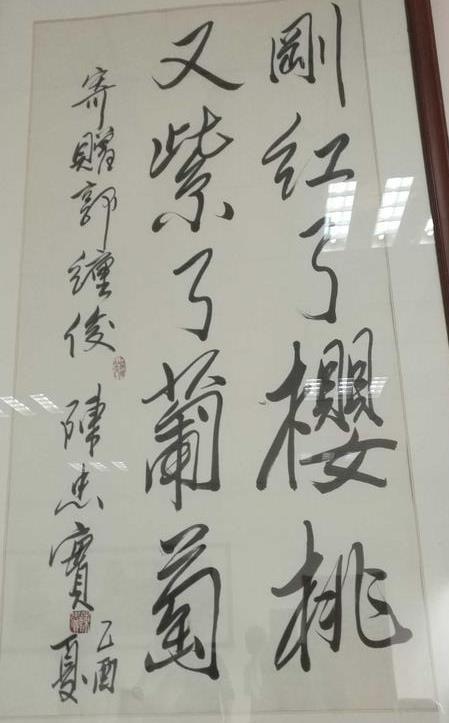 剛紅了櫻桃
又紫了葡萄
寄贈郭纏俊 陳忠實
乙酉
夏